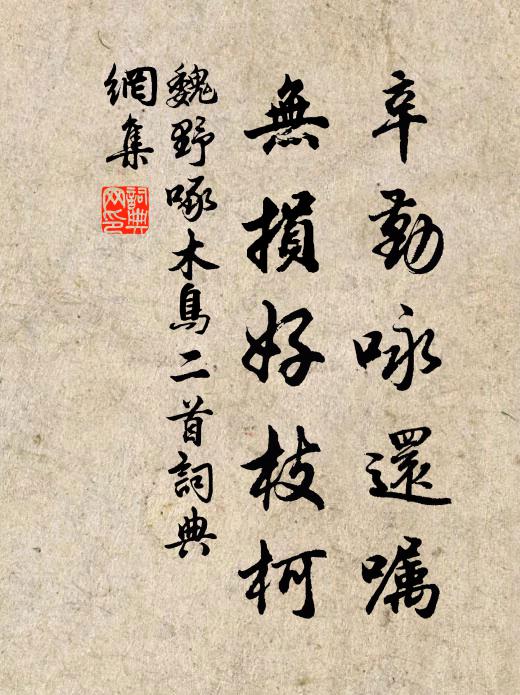 辛勤咏還嘱
無損好枝柯
魏野啄木鳥二首詞典
網集
詞典网印